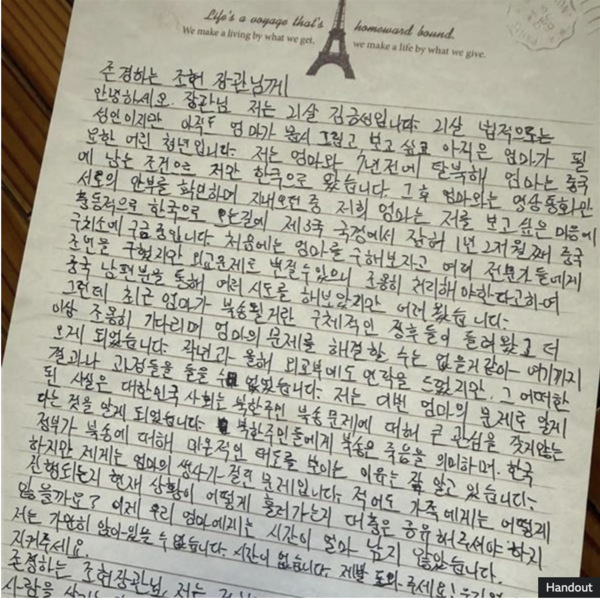 Life's a voyage that's homeward bound.
We make a living by what we get, we make a life by what we give.
존경하는 조현 장관님께
안녕하세요. 장관님 저는 21살 김금성입니다. 21살 법적으로는
성인이지만 아직도 엄마가 몹시 그립고, 보고 싶고 아직은 엄마가 필
요한 어린 청년입니다. 저는 엄마와 7년전에 탈북해 엄마는 중국
에 남는 조건으로 저만 한국으로 왔습니다. 그 후 엄마와는 영상통화만
서로의 안부를 확인하며 지내오던 중 저희 엄마는 저를 보고 싶은 마음에
충동적으로 한국으로 오는길에 제3국 국경에서 잡혀 1년 2개월째 중국
구치소에 구금중입니다. 처음에는 엄마를 구해보자고 여러 전문가들에게
조언을 구했지만 외교문제로 번질수있으니 조용히 처리해야한다고하여
중국 남편분을 통해 여러 시도를 해보았지만 어려웠습니다.
그런데 최근 엄마가 북송될거란 구체적인 징후들이 들려왔고 더
이상 조용히 기다리며 엄마의 문제를 해결할 수는 없을거같아 여기까지
오게 되었습니다. 작년과 올해 외교부에도 연락을 드렸지만, 그 어떠한
결과나 과정들을 들을 수 없었습니다. 저는 이번 엄마의 문제로 알게
된 사실은 대한민국 사회는 북한주민 북송문제에 대해 큰 관심을 갖지않는
다는 것을 알게 되었습니다. 북한주민들에게 북송은 죽음을 의미하며, 한국
정부가 북송에 대해 미온적인 태도를 보이는 이유는 잘 알고 있습니다.
하지만 제게는 엄마의 생사가 걸린 문제입니다. 적어도 가족에게는 어떻게
진행되는지 현재 상황이 어떻게 흘러가는지 대충은 공유해주셔야 하지
않을까요? 이제 우리 엄마에게는 시간이 얼마 남지 않았습니다.
저는 가만히 앉아있을 수 없습니다. 시간이 없습니다. 제발 도와주세요!
지켜주세요.
존경하는 조현장관님, 저는
사람을
Handout